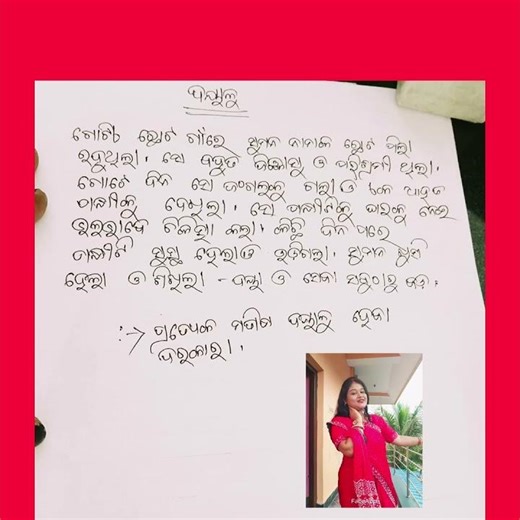 ଦୟାଳୁ
ଗୋଟିଏ ଛୋଟ ଗାଁରେ ସୁମନ ନାମକ ଛୋଟ ପିଲା
ରହୁଥିଲା। ସେ ବହୁତ ଜିଜ୍ଞାସୁ ଓ ପରିଶ୍ରମୀ ଥିଲା।
ଗୋଟେ ଦିନ ସେ ଜଂଗଲକୁ ଗଲା ଓ ଆହତ
ପକ୍ଷୀକୁ ଦେଖିଲା। ସେ ପକ୍ଷୀଟିକୁ ଘରକୁ ନେଇ
ଚିକିତ୍ସା କଲା। କିଛି ଦିନ ପରେ
ପକ୍ଷୀଟି ସୁସ୍ଥ ହେଲା ଓ ଉଡ଼ିଗଲା। ସୁମନ ଖୁସି
ହେଲା ଓ ଶିଖିଲା - ଦୟା ଓ ସେବା ସବୁଠାରୁ ବଡ଼।
:→ ପ୍ରତ୍ୟେକ ମଣିଷ ଦୟାଳୁ ହେବା
ଦରକାର।
FaceApp